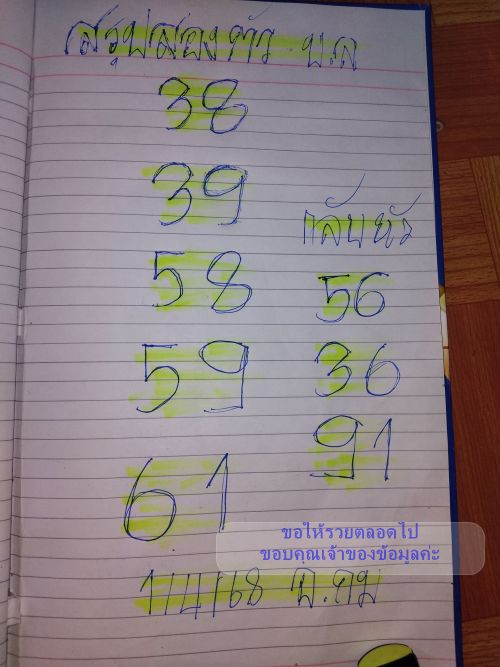 สรุปสองตัว บ.ล
38
39
58
59
61
กลับหัว
56
36
91
ขอให้รวยตลอดไป
ขอบคุณเจ้าของข้อมูลค่ะ
1/4/68